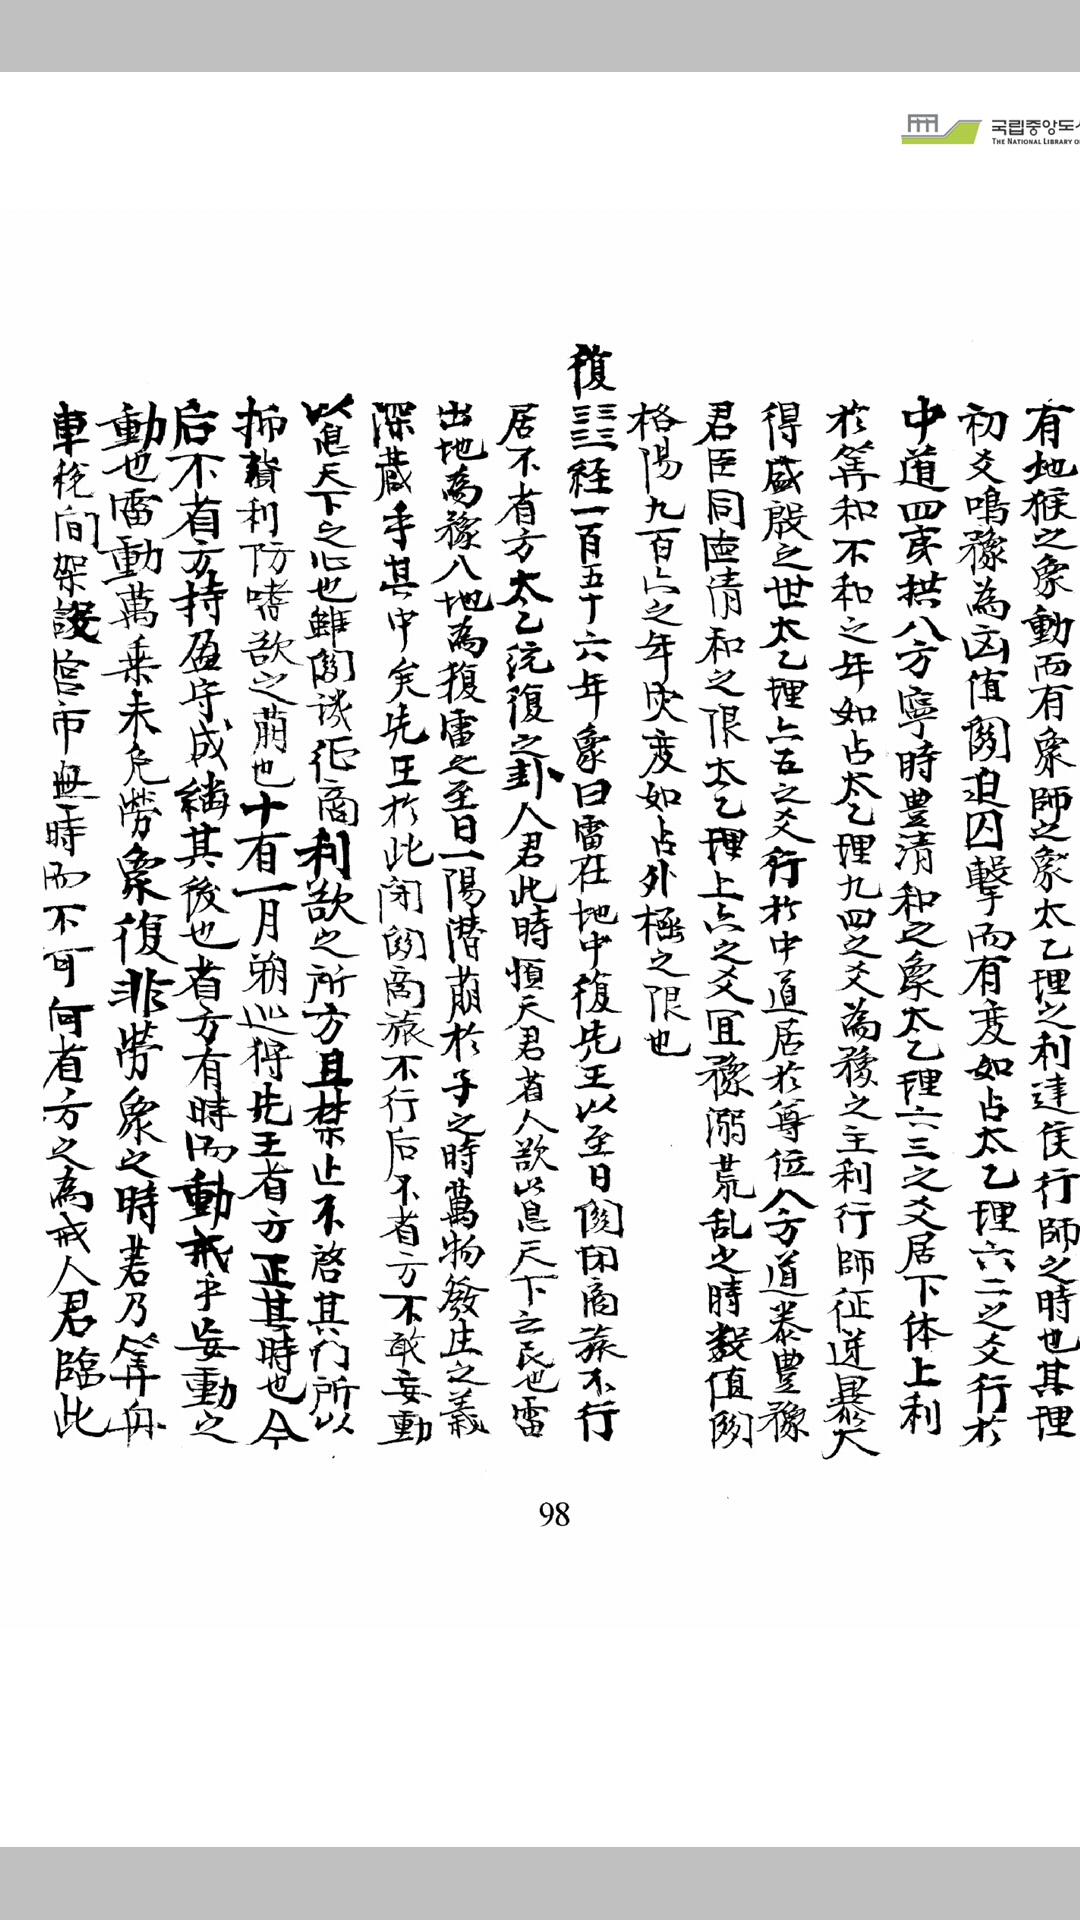 국립중앙도
THE NATIONAL LIBRARY O
有地猴之象動而有象師之象太乙理之利達侯行師之時也其理
初爻鳴豫為凶值関迫囚擊而有変如占太乙理六二之爻行於
中道四夷拱八方寧時豊清和之象太乙理六三之爻居下体上利
於筭和不和之年如占太乙理九四之爻為豫之主利行師征逆暴大
得盛殷之世太乙理六五之爻行於中道居於尊位八方道泰豊豫
君臣同清和之限太乙理上六之爻冝豫溺荒乱之時数值関
格陽九百六之年灾変如占外極之限也
復 經一百五十六年象曰雷在地中復先王以至日関閉商旅不行
居不省方太乙統復之卦人君此時順天君省人欲以息天下之民也雷
出地為豫入地為復雷之至日一陽潜萠於子之時萬物發生之義
深蔵乎其中矣先王於此閉関商旅不行后不省方不敢妄動
以息天下之心也雖関譏征商利欲之所方且禁止不啓其门所以
利防嗜欲之萠也十有一月朔巡得先王省方正其時也今
后不省方持盈守成其後也省方有時而動戒乎妄動之
動也雷動萬乗未免劳象復非勞象之時若乃筭舟
車稅间架設宫市無時而不可何省方之為戒人君臨此
98